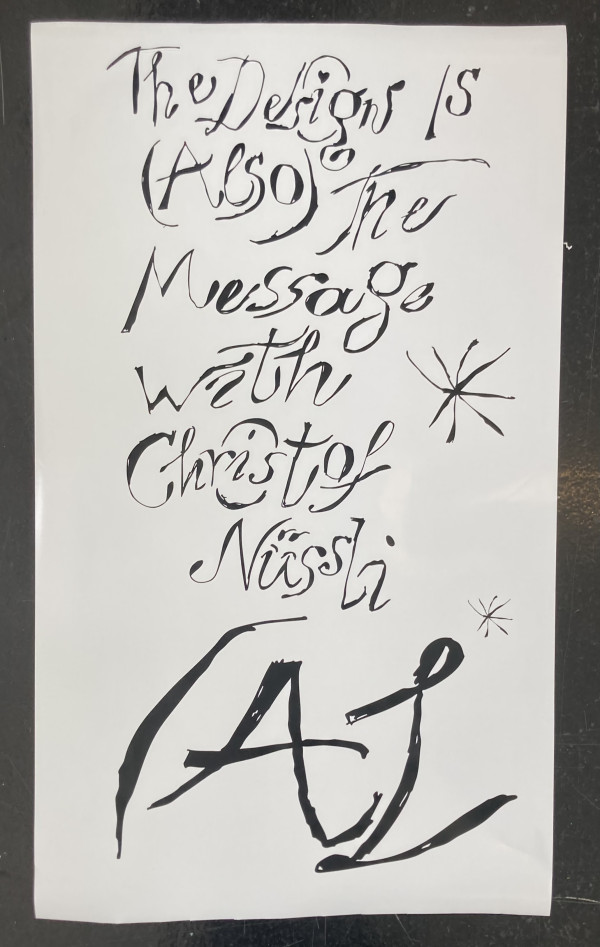 The Design Is
(Also) The
Message
with
Christof
Nüssli